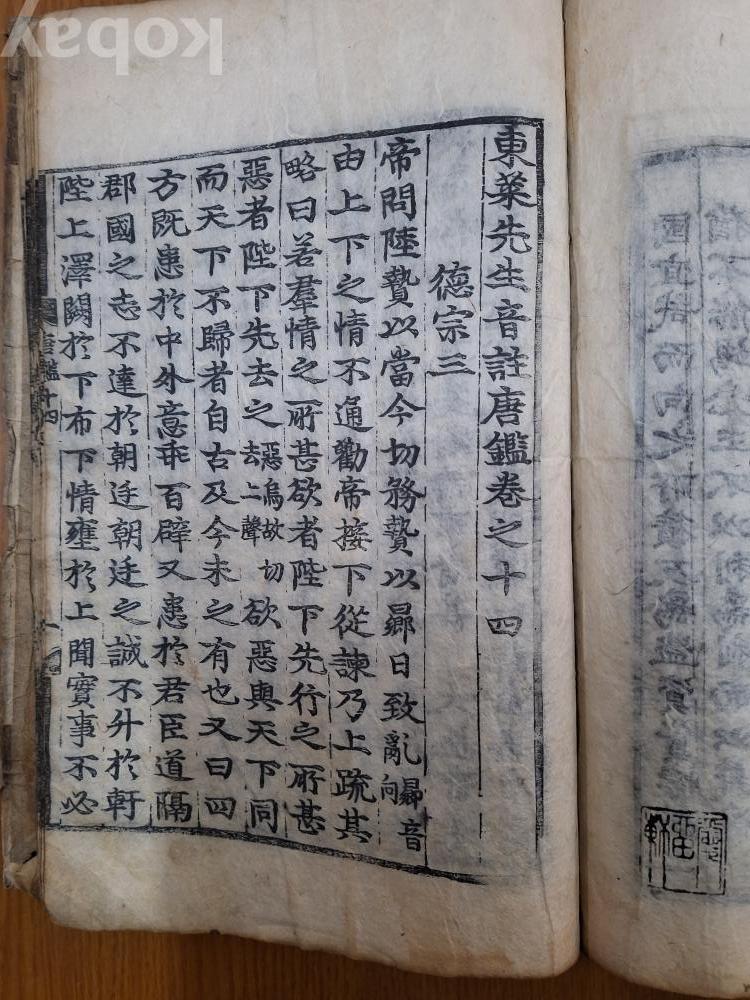 東萊先生音註唐鑑卷之十四
德宗三
帝問陸贄以當今切務贄以曏日致亂曏音向
由上下之情不通勸帝接下從諫乃上疏其
略曰若羣情之所甚欲者陛下先行之所甚
惡者陛下先去之惡烏故切去上聲欲惡與天下同
而天下不歸者自古及今未之有也又曰四
方旣患於中外意乖百辟又患於君臣道隔
郡國之志不達於朝廷朝廷之誠不升於軒
陛上澤闕於下布下情壅於上聞實事不必
唐鑑十四
kobay